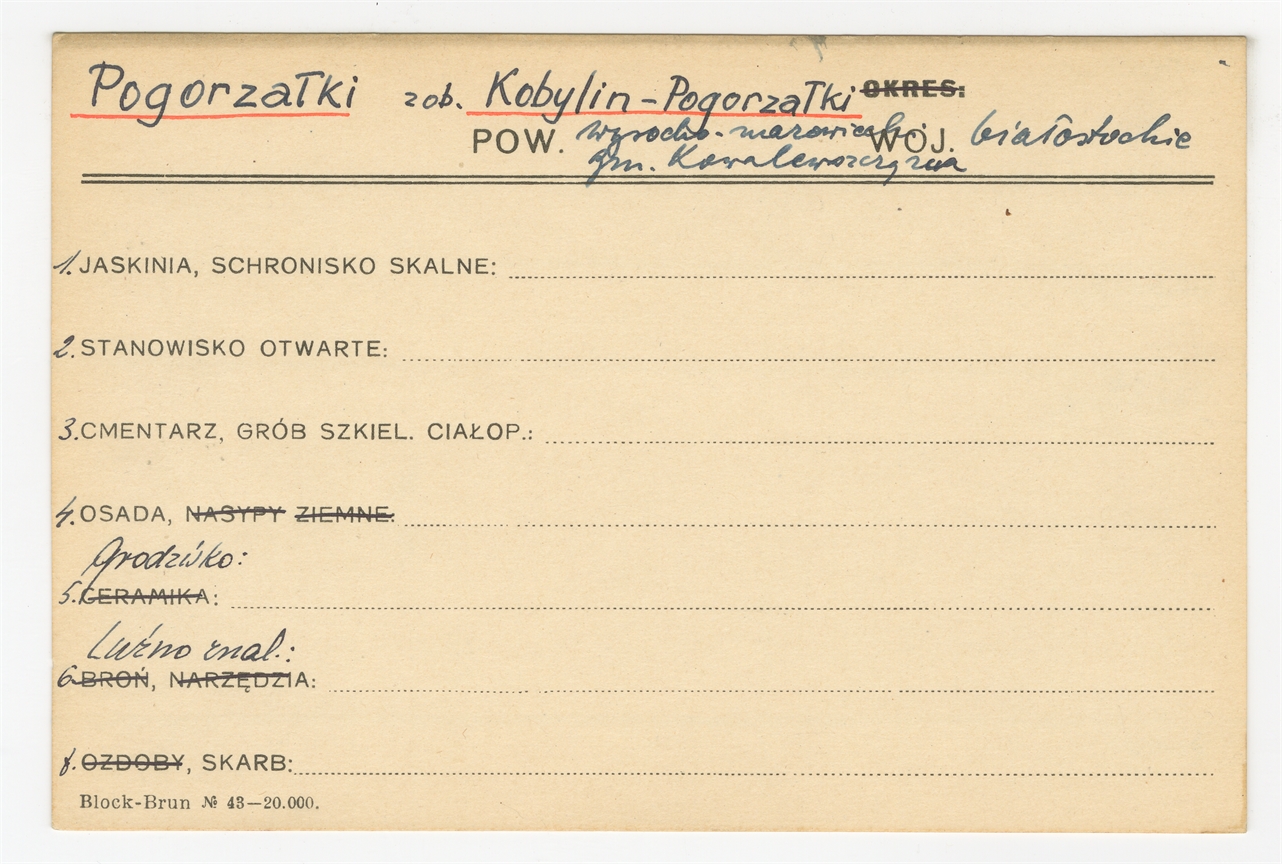 Pogorzałki zob. Kobylin-Pogorzałki OKRES:
POW. wysocko-mazowieck. WOJ. białostockie
gm. Kowalewszczyzna
1. JASKINIA, SCHRONISKO SKALNE:
2. STANOWISKO OTWARTE:
3. CMENTARZ, GRÓB SZKIEL. CIAŁOP.:
4. OSADA, NASYPY ZIEMNE:
Grodzisko:
5. CERAMIKA:
Luźno znal.:
6. BROŃ, NARZĘDZIA:
OZDOBY, SKARB:
Block-Brun № 43—20.000.